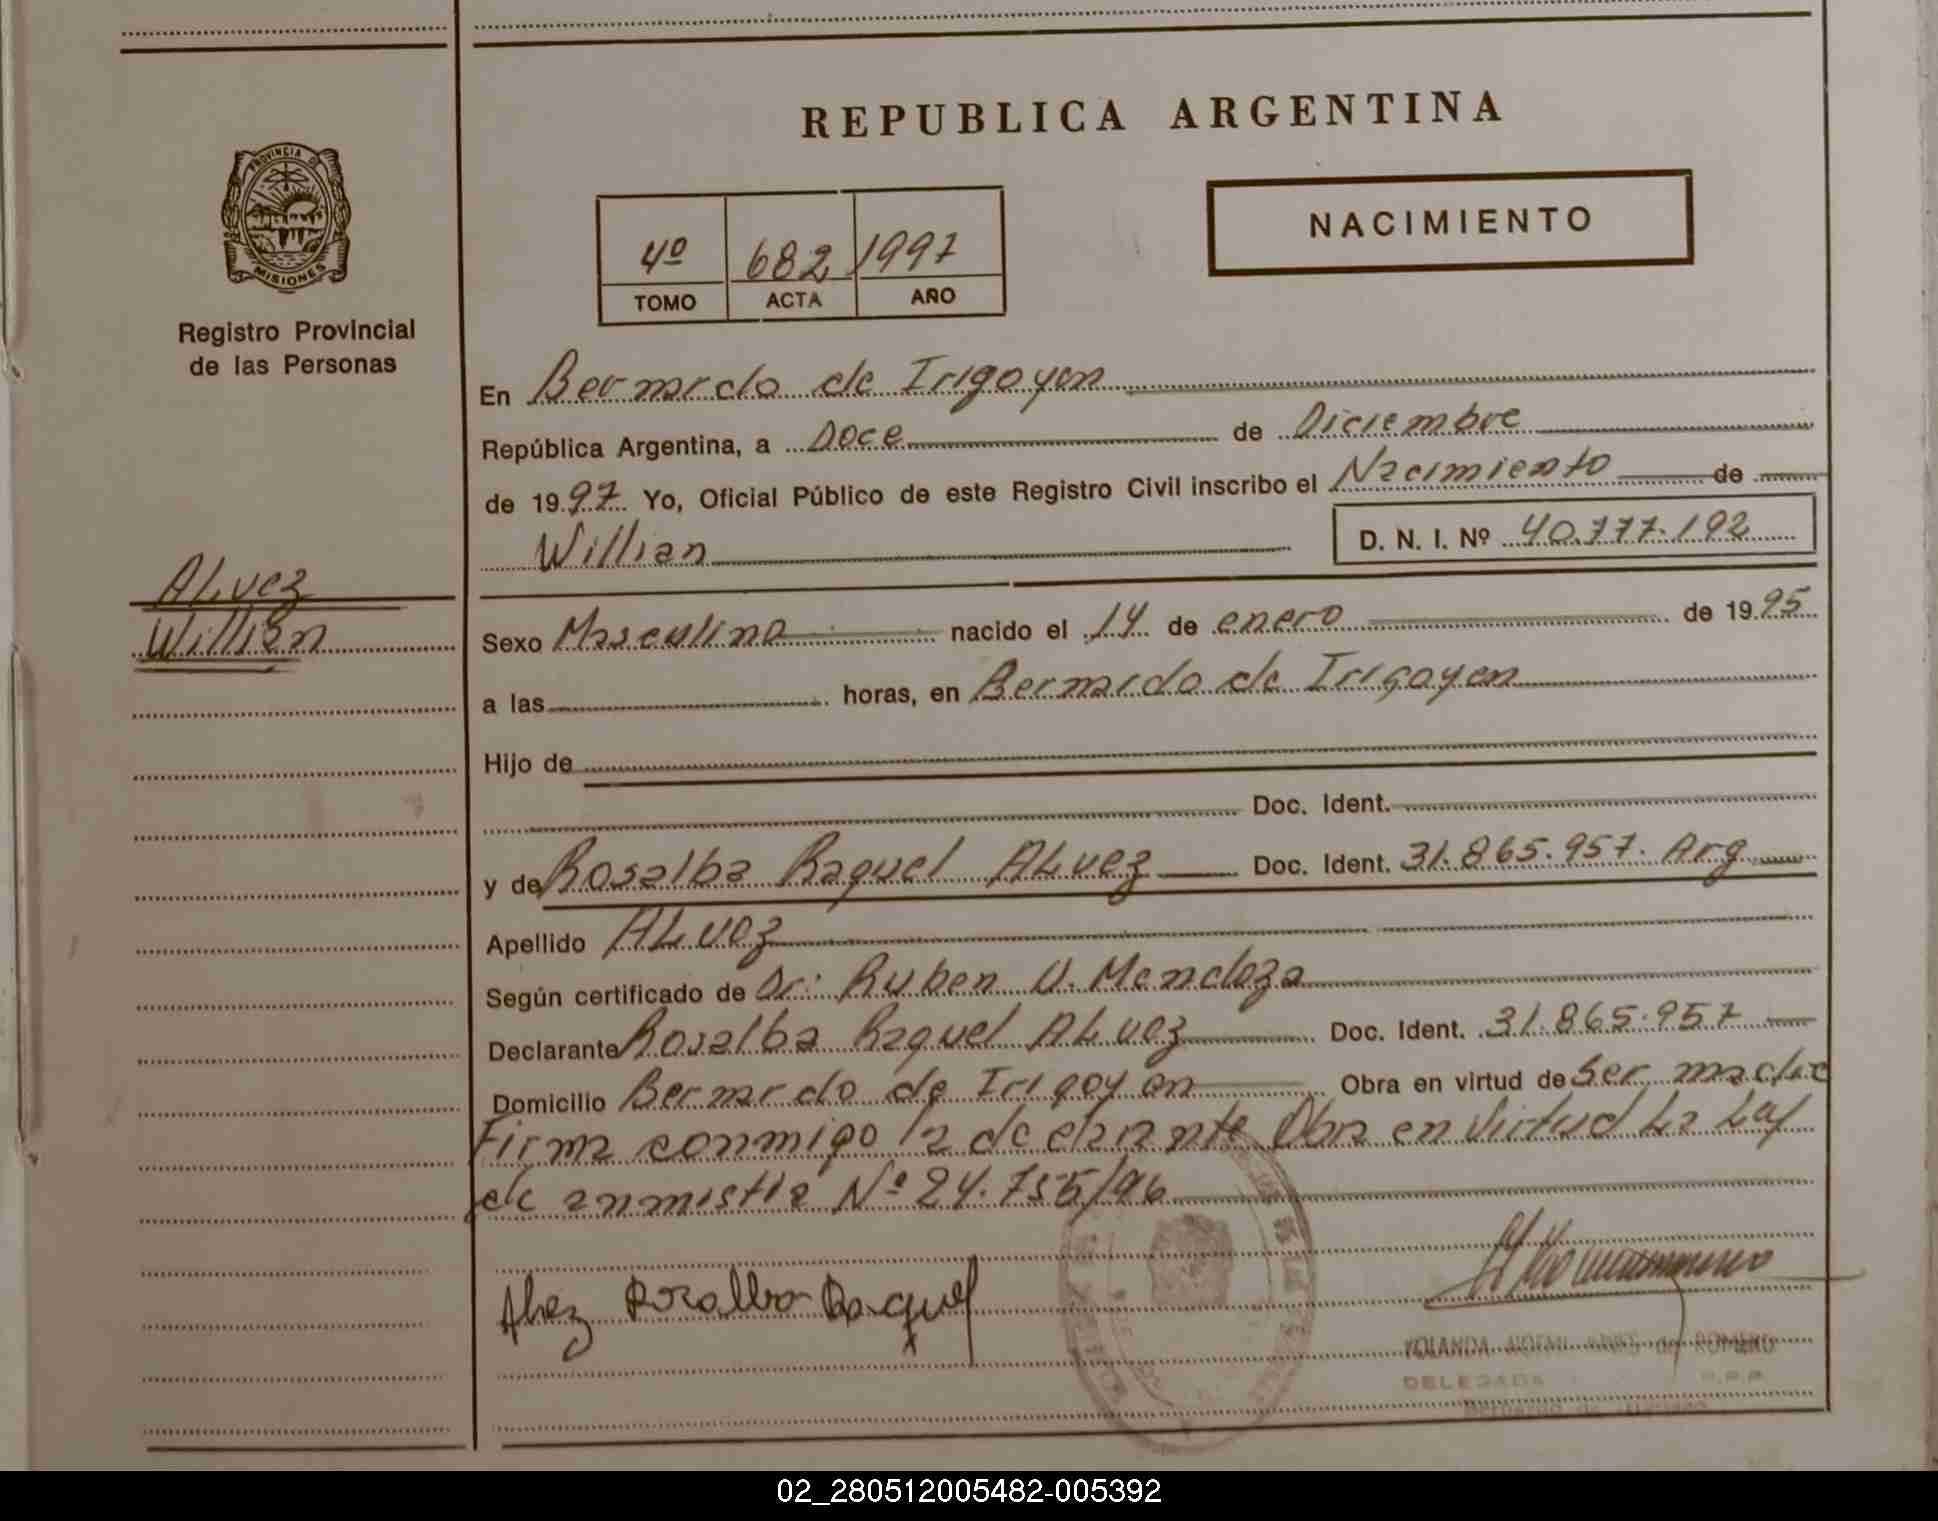 PROVINCIA D
MISIONES
Registro Provincial
de las Personas
ALvez
Willian
REPUBLICA ARGENTINA
4º 682 1997
TOMO ACTA AÑO
NACIMIENTO
En Bernardo de Irigoyen
República Argentina, a Doce de Diciembre
de 1997 Yo, Oficial Público de este Registro Civil inscribo el Nacimiento de
Willian D. N. I. Nº 40.777.192
Sexo Masculino nacido el 14 de enero de 1995
a las horas, en Bernardo de Irigoyen
Hijo de
Doc. Ident.
y de Rosalba Raquel ALvez Doc. Ident. 31.865.957. Arg
Apellido ALvez
Según certificado de Dr: Ruben U. Mendoza
Declarante Rosalba Raquel ALvez Doc. Ident. 31.865.957
Domicilio Bernardo de Irigoyen Obra en virtud de Ser madre
Firma conmigo la declarante Obra en Virtud La Ley
de anmistia Nº 24.755/96
Alvez Rosalba Raquel
YOLANDA NOEMI de ROMERO
DELEGADA R.P.P.
Bernardo de Irigoyen
02_280512005482-005392